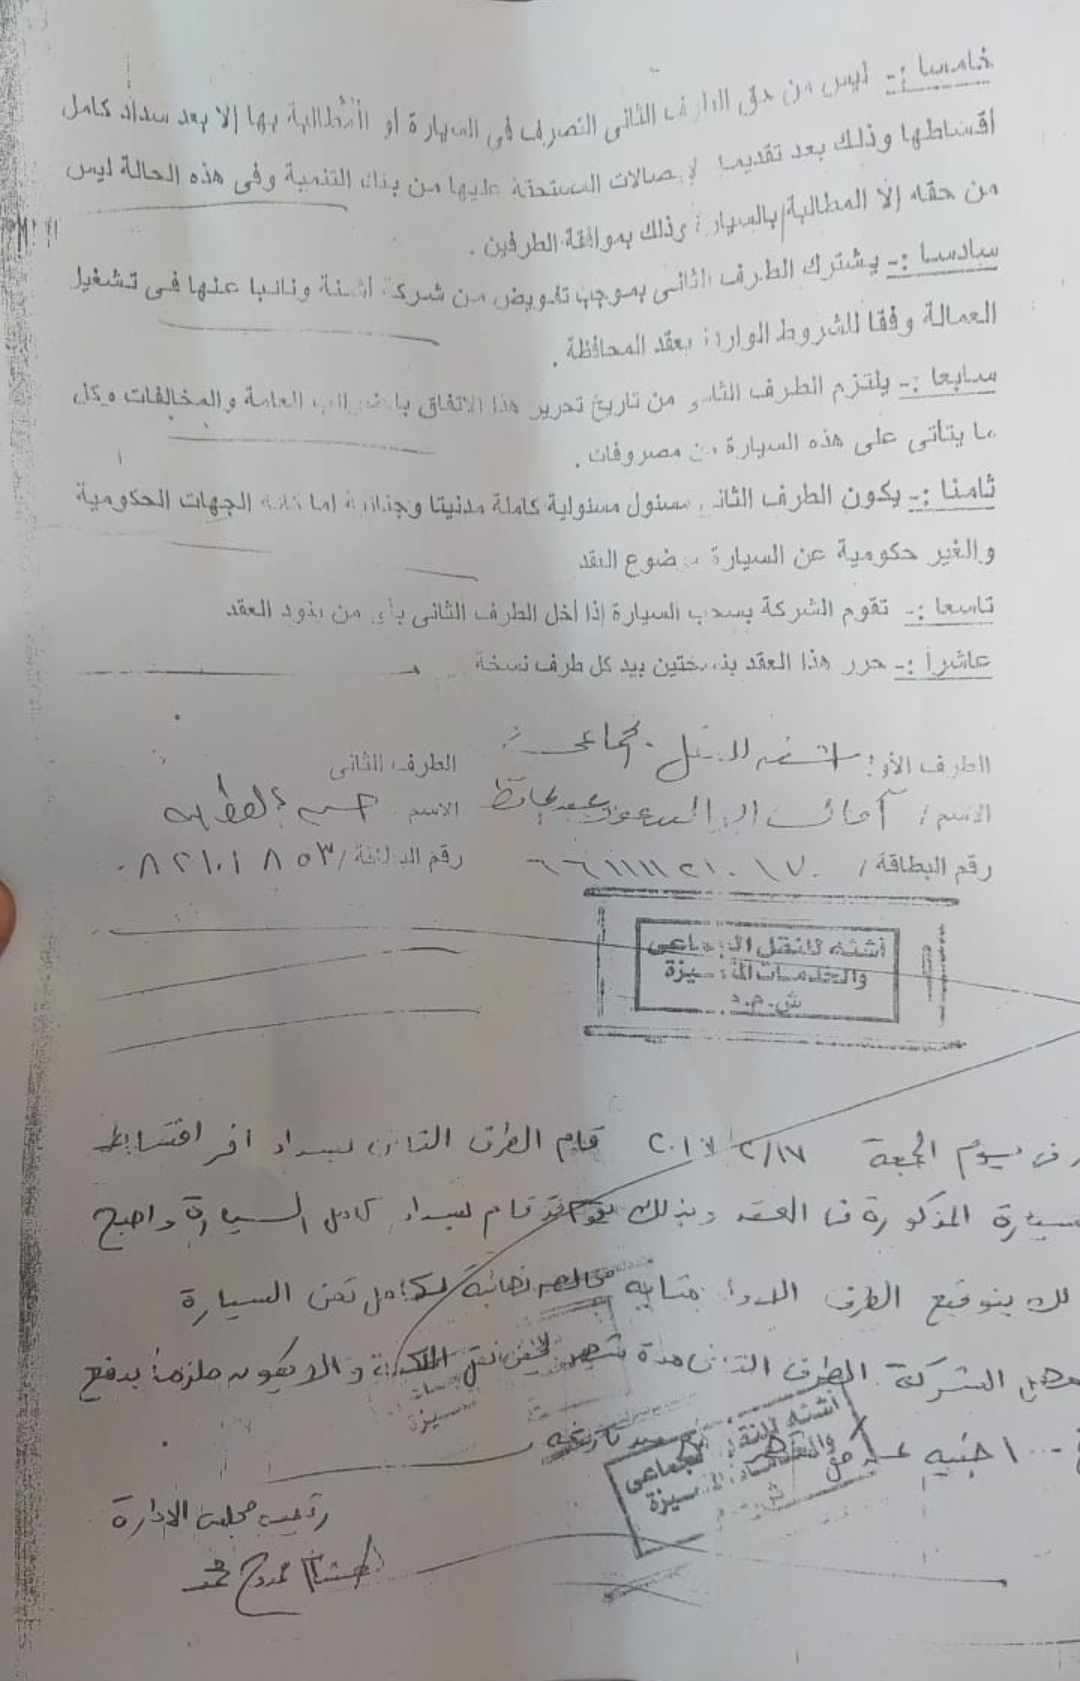 خامسا :- ليس من حق الطرف الثانى التصرف فى السيارة او المطالبة بها إلا بعد سداد كامل
اقساطها وذلك بعد تقديم الإيصالات المستحقة عليها من بنك التنمية وفى هذه الحالة ليس
من حقه إلا المطالبة بالسيارة وذلك بموافقة الطرفين .
سادسا :- يشترك الطرف الثانى بموجب تفويض من شركة اشنة ونائبا عنها فى تشغيل
العمالة وفقا للشروط الواردة بعقد المحافظة .
سابعا :- يلتزم الطرف الثانى من تاريخ تحرير هذا الاتفاق بالضرائب العامة والمخالفات وكل
ما يتأتى على هذه السيارة من مصروفات .
ثامنا :- يكون الطرف الثانى مسئول مسئولية كاملة مدنيتا وجنائية امام كافة الجهات الحكومية
والغير حكومية عن السيارة موضوع العقد
تاسعا :- تقوم الشركة بسحب السيارة إذا أخل الطرف الثانى بأى من بنود العقد
عاشرا :- حرر هذا العقد بنسختين بيد كل طرف نسخة
الطرف الأول : اشنه للنقل الجماعى
الطرف الثانى
الاسم /
الاسم
رقم البطاقة /
رقم البطاقة /
أشنه للنقل الجماعى
والخدمات المتميزة
ش.م.م
فى يوم الجمعة ٢٠١٧/٢/١٧ قام الطرف الثانى بسداد اخر اقساط
المذكورة فى العقد وبذلك قام بسداد كامل السيارة واصبح
بتوقيع الطرف الاول بمثابة مخالصه نهائية لكامل ثمن السيارة
الشركة الطرف الثانى مدة شهر نقل الملكية والا يكون ملزما بدفع
جنيه عن كل شهر من تاريخه
أشنه للنقل الجماعى
والخدمات المتميزة
رئيس مجلس الادارة
هشام ممدوح محمد